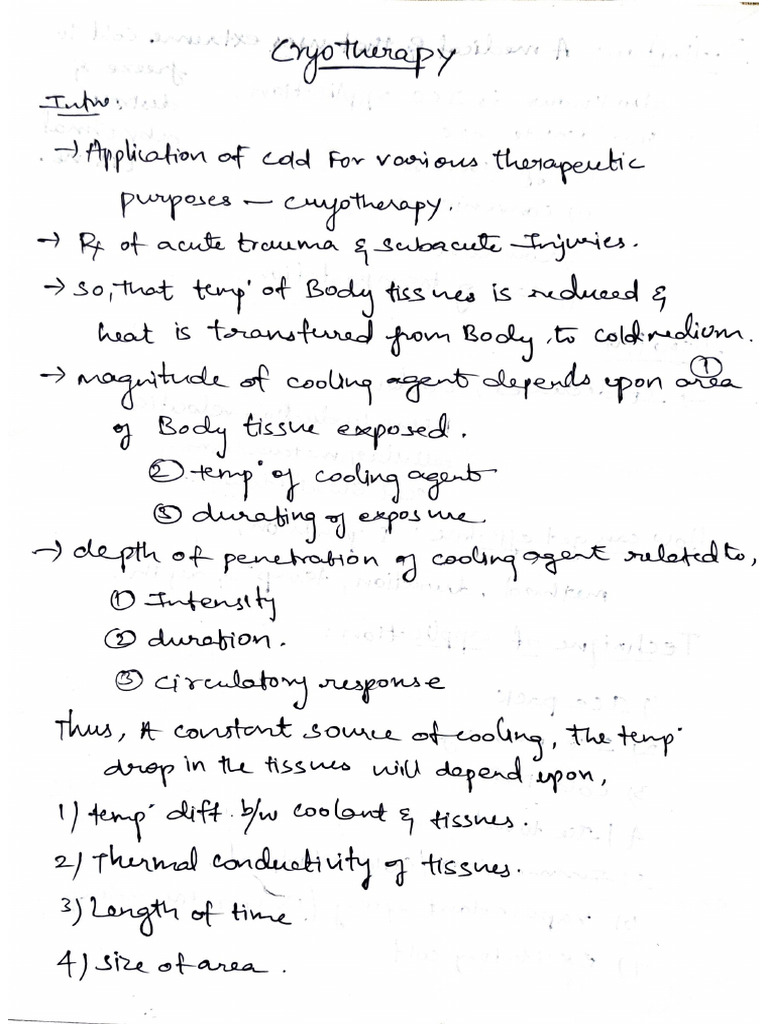 Cryotherapy
Intro:
→ Application of cold For various therapeutic
purposes — cryotherapy.
→ Rx of acute trauma & subacute Injuries.
→ so, that temp. of Body tissues is reduced &
heat is transferred from Body to cold medium.
→ magnitude of cooling agent depends upon ① area
of Body tissue exposed.
② temp. of cooling agent
③ durating of exposure
→ depth of penetration of cooling agent related to,
① Intensity
② duration.
③ circulatory response
Thus, A constant source of cooling, the temp.
drop in the tissues will depend upon,
1) temp. diff. b/w coolant & tissues.
2) Thermal conductivity of tissues.
3) Length of time
4) size of area.